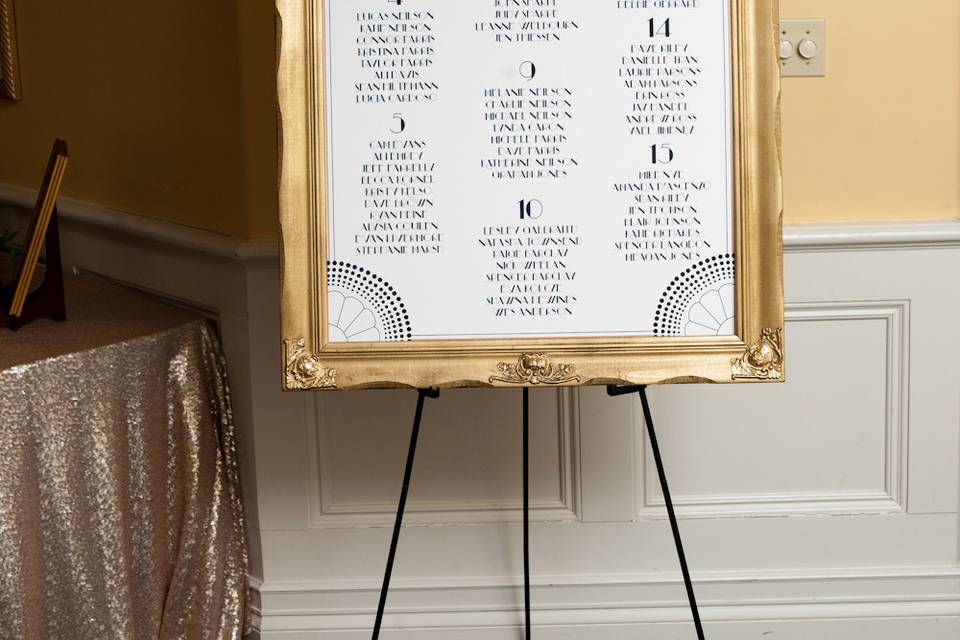 4
LUCAS NEILSON
KATIE NEILSON
CONNOR FARRIS
KRISTINA FARRIS
TAYLOR FARRIS
ALI DAVIS
SEAN HILTEMANN
LUCIA CARDOSO
5
CAM EVANS
ALI EMPEY
JEFF FARRELLY
BECCA KORNEL
KRISTY KELSO
DAVE BROWN
RYAN HEINE
ALYSIA COULEN
EVAN LIVERMORE
STEPHANIE MARSH
JOHN SHARPE
JUDY SHARPE
LEANNE WELBOURN
JEN THIESSEN
9
MELANIE NEILSON
CHARLIE NEILSON
MICHAEL NEILSON
LYNDA CARON
MICHELE FARRIS
DAVE FARRIS
KATHERINE NEILSON
GRAHAM JONES
10
LESLEY GALBRAITH
NATASHA TOWNSEND
PAIGE BARCLAY
NICK WHELAN
SPENCER BARCLAY
EVA KOLOZE
SHAWNA HEWINGS
WES ANDERSON
DEBBIE GERRARD
14
DAVE RILEY
DANIELLE TRAN
LAURIE PARSONS
ADAM PARSONS
ERIN ROSS
JAY HANDEL
ANDREW ROSS
YAEL JIMENEZ
15
MIKE NYE
AMANDA D'ASCENZO
SEAN RILEY
JEN THOMSON
BLAIR JOHNSON
KATIE RICHARDS
SPENCER LANGDON
MEAGAN JONES